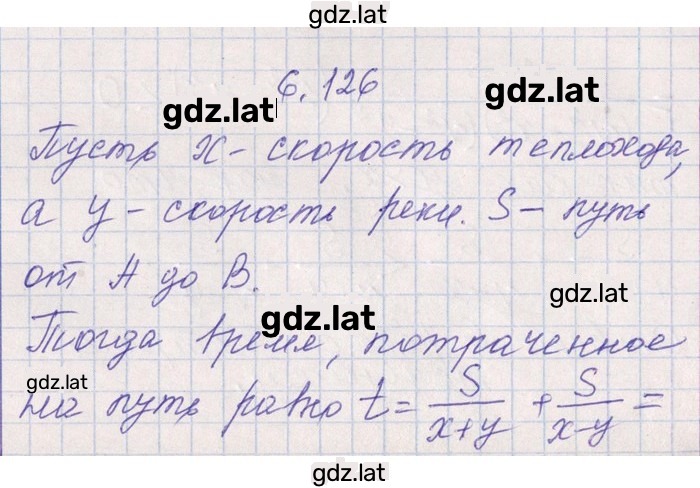 gdz.lat
6.126
gdz.lat
gdz.lat
Пусть x - скорость теплохода,
а y - скорость реки. S - путь
от A до B.
gdz.lat
gdz.lat
Тогда время, потраченное
gdz.lat
на путь равно t = S/(x+y) + S/(x-y) =
gdz.lat